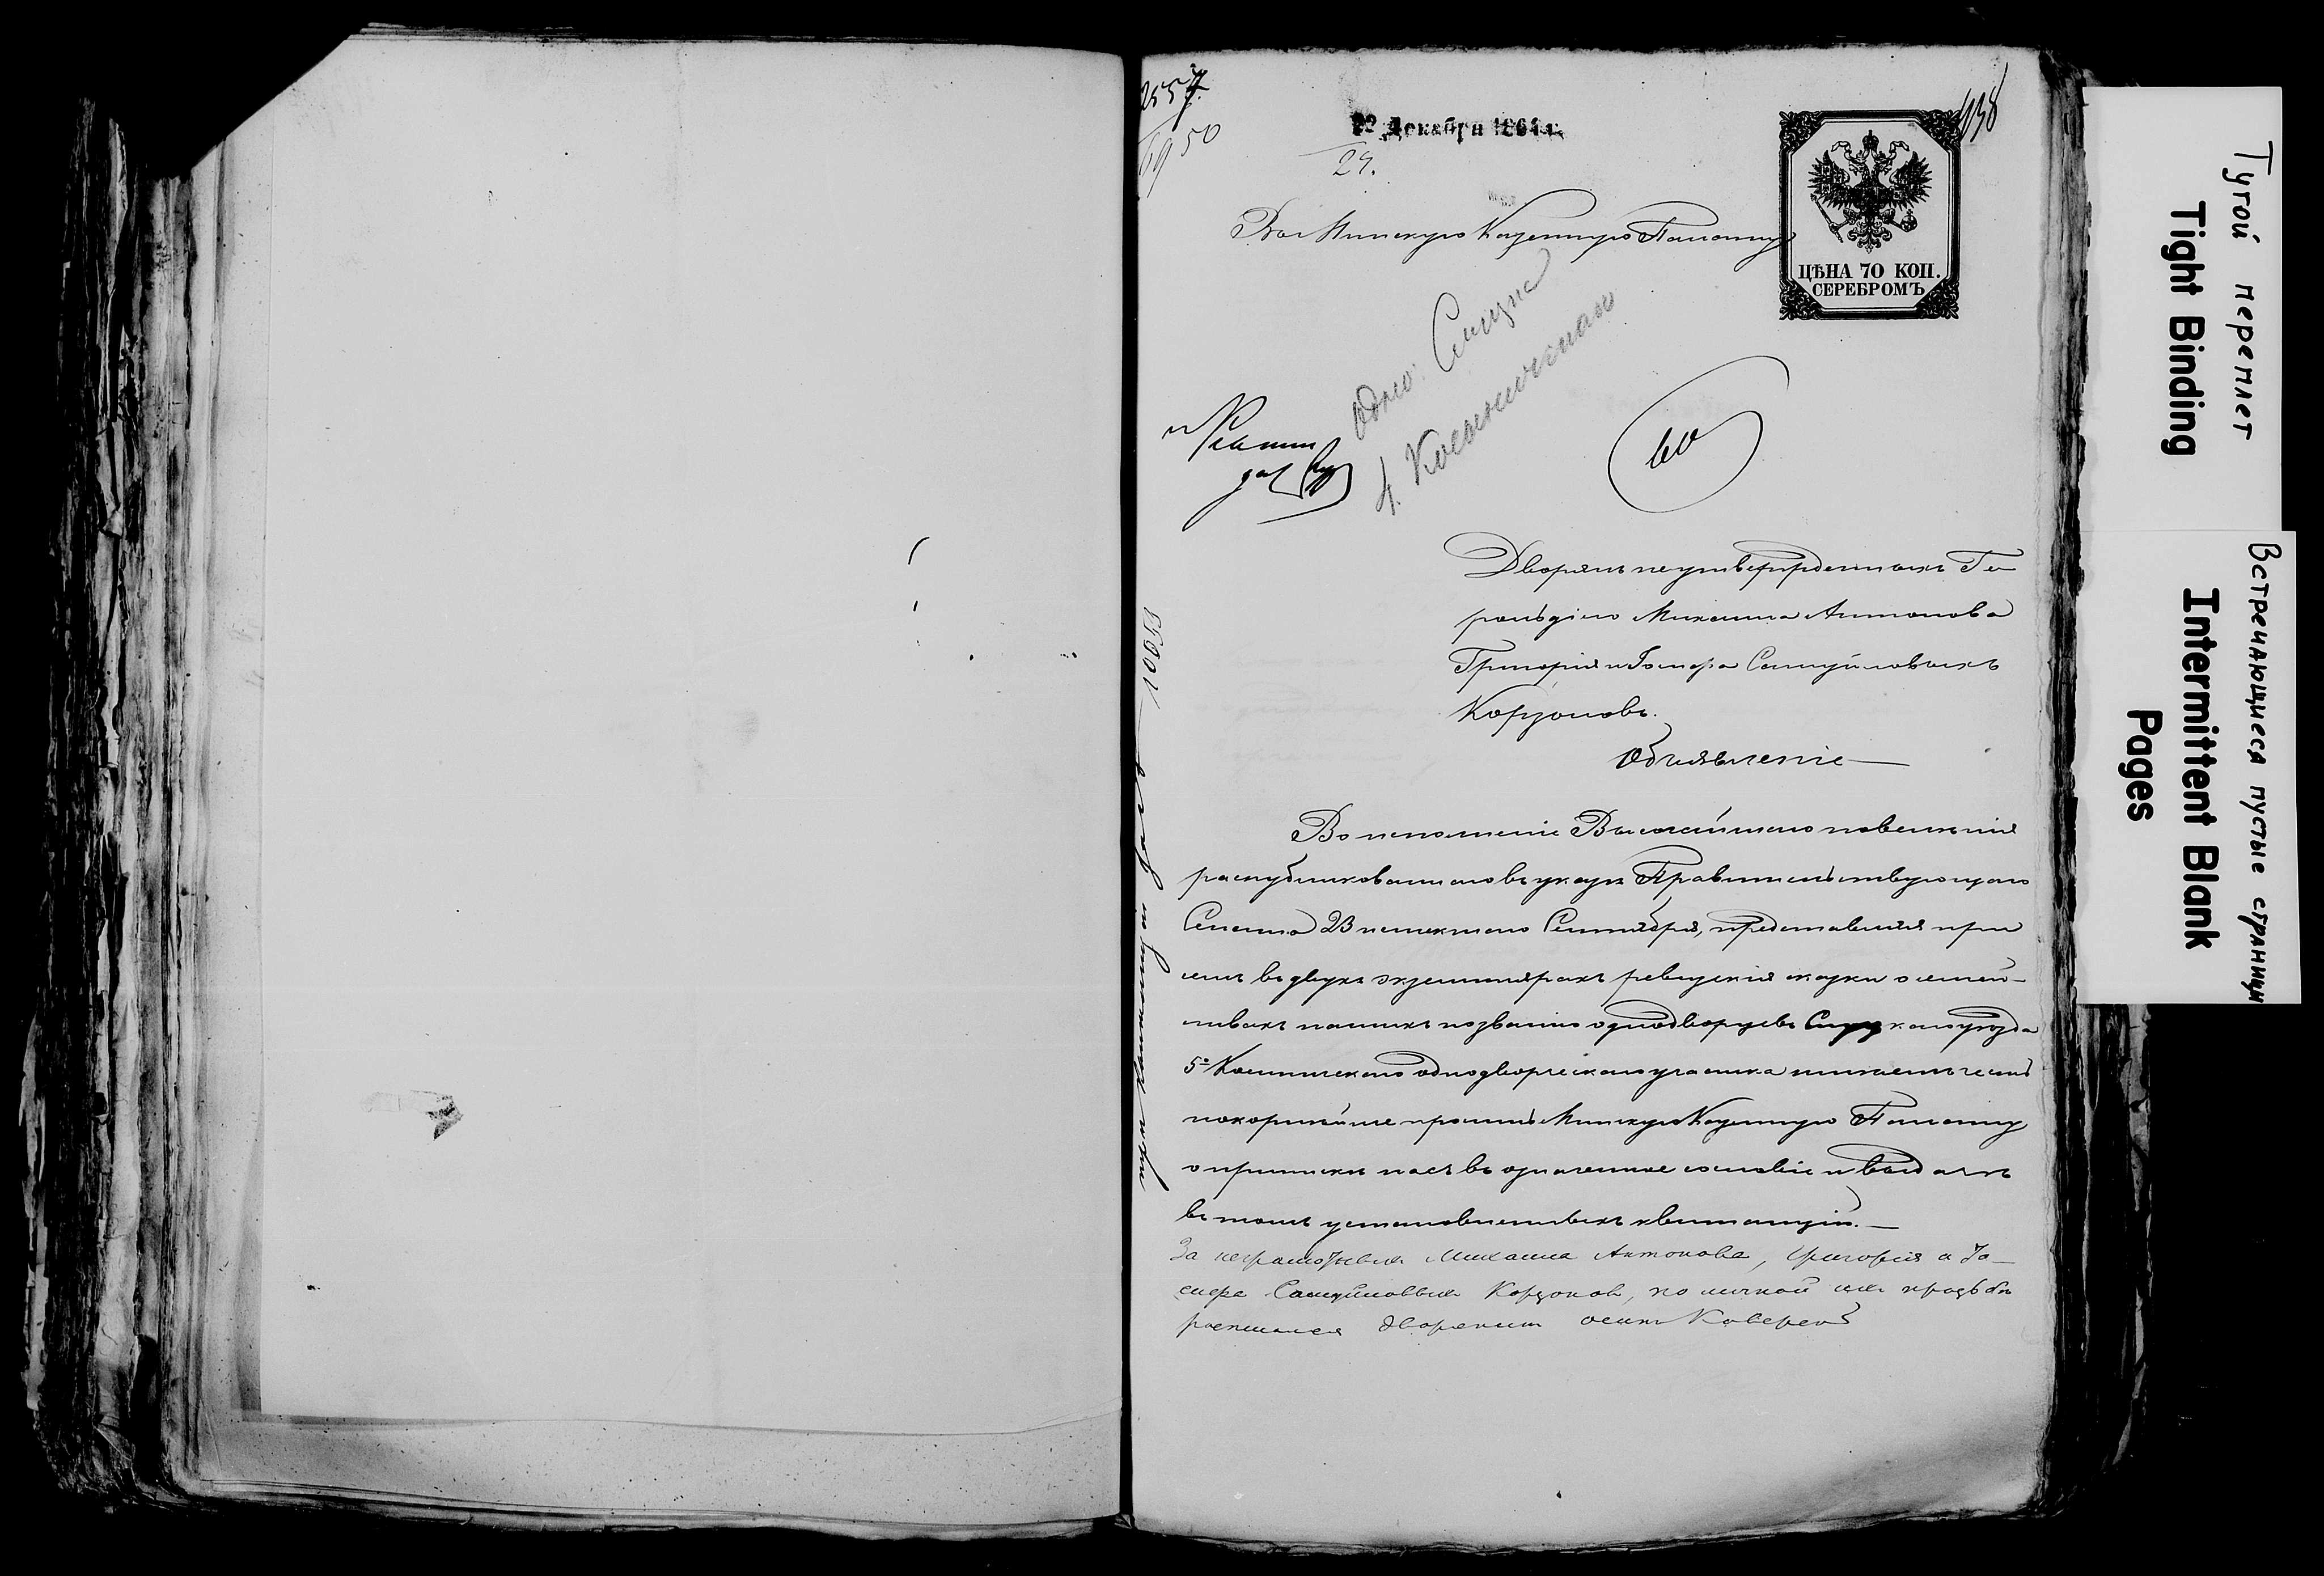 2557
6950
138
Декабря 1864 г.
24.
ЦѢНА 70 КОП.
СЕРЕБРОМЪ
Въ Минскую Казенную Палату
Одно. Слуцка
60
Дворянъ неутвержденныхъ Ге
рольдіею Михаила Антонова
Григорія и Гаспера Самуйловыхъ
Корзоновъ.
Объявленіе
Во исполненіе Высочайшаго повелѣнія
распубликованнаго въ указѣ Правительствующаго
Сената 23 истекшаго Сентября, представляя при
семъ въ двухъ экземплярахъ ревизскія сказки о семей-
ствахъ нашихъ по званію однодворцевъ Слуцкаго уѣзда
5º однодворческаго участка имѣемъ честь
покорнѣйше просить Минскую Казенную Палату
о припискѣ насъ въ означенное сословіе и выдачѣ
въ томъ установленныхъ квитанцій.
За неграмотныхъ Михаила Антонова, Григорія и Га-
спера Самуйловыхъ Корзоновъ, по личной ихъ просьбѣ
росписался дворянинъ Осипъ
Тугой переплет
Tight Binding
Встречающиеся пустые страницы
Intermittent Blank
Pages